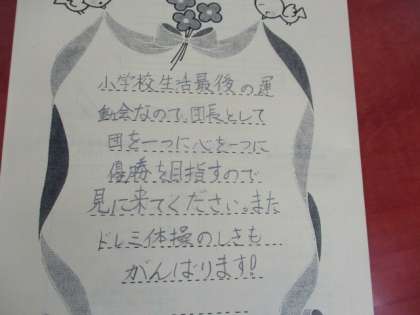 小学校生活最後の運
動会なので、団長として
団を一つに心を一つに
優勝を目指すので
見に来てください。また
ドレミ体操のしきも
がんばります!